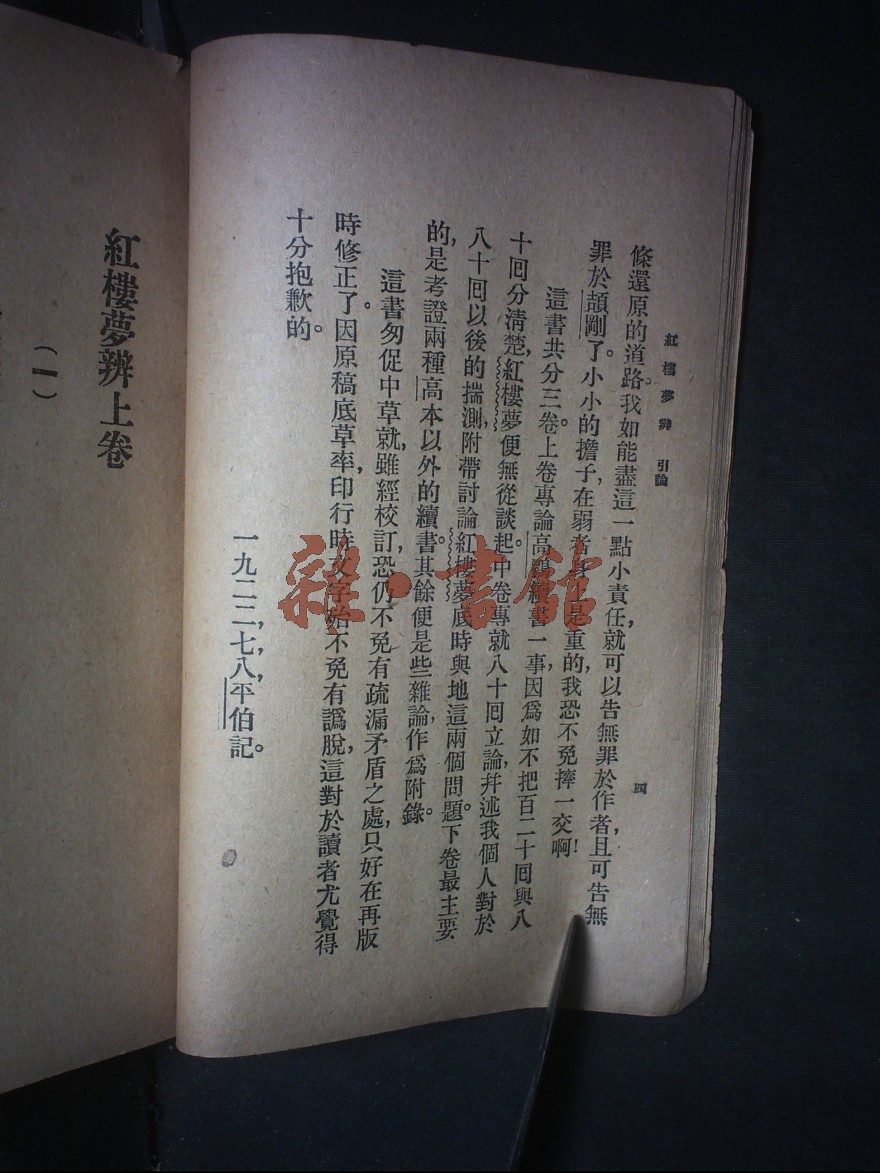 紅樓夢辨 引論
四
條還原的道路。我如能盡這一點小責任,就可以告無罪於作者,且可告無
罪於頡剛了。小小的擔子,在弱者身上是重的,我恐不免摔一交啊!
這書共分三卷。上卷專論高鶚續書一事,因爲如不把百二十回與八
十回分清楚,紅樓夢便無從談起。中卷專就八十回立論,幷述我個人對於
八十回以後的揣測,附帶討論紅樓夢底時與地這兩個問題。下卷最主要
的,是考證兩種高本以外的續書。其餘便是些雜論,作爲附錄。
這書匆促中草就,雖經校訂,恐仍不免有疏漏矛盾之處,只好在再版
時修正了。因原稿底草率,印行時文字始不免有譌脫,這對於讀者尤覺得
十分抱歉的。
一九二二,七,八,平伯記。
紅樓夢辨上卷
(一)
雜·書館